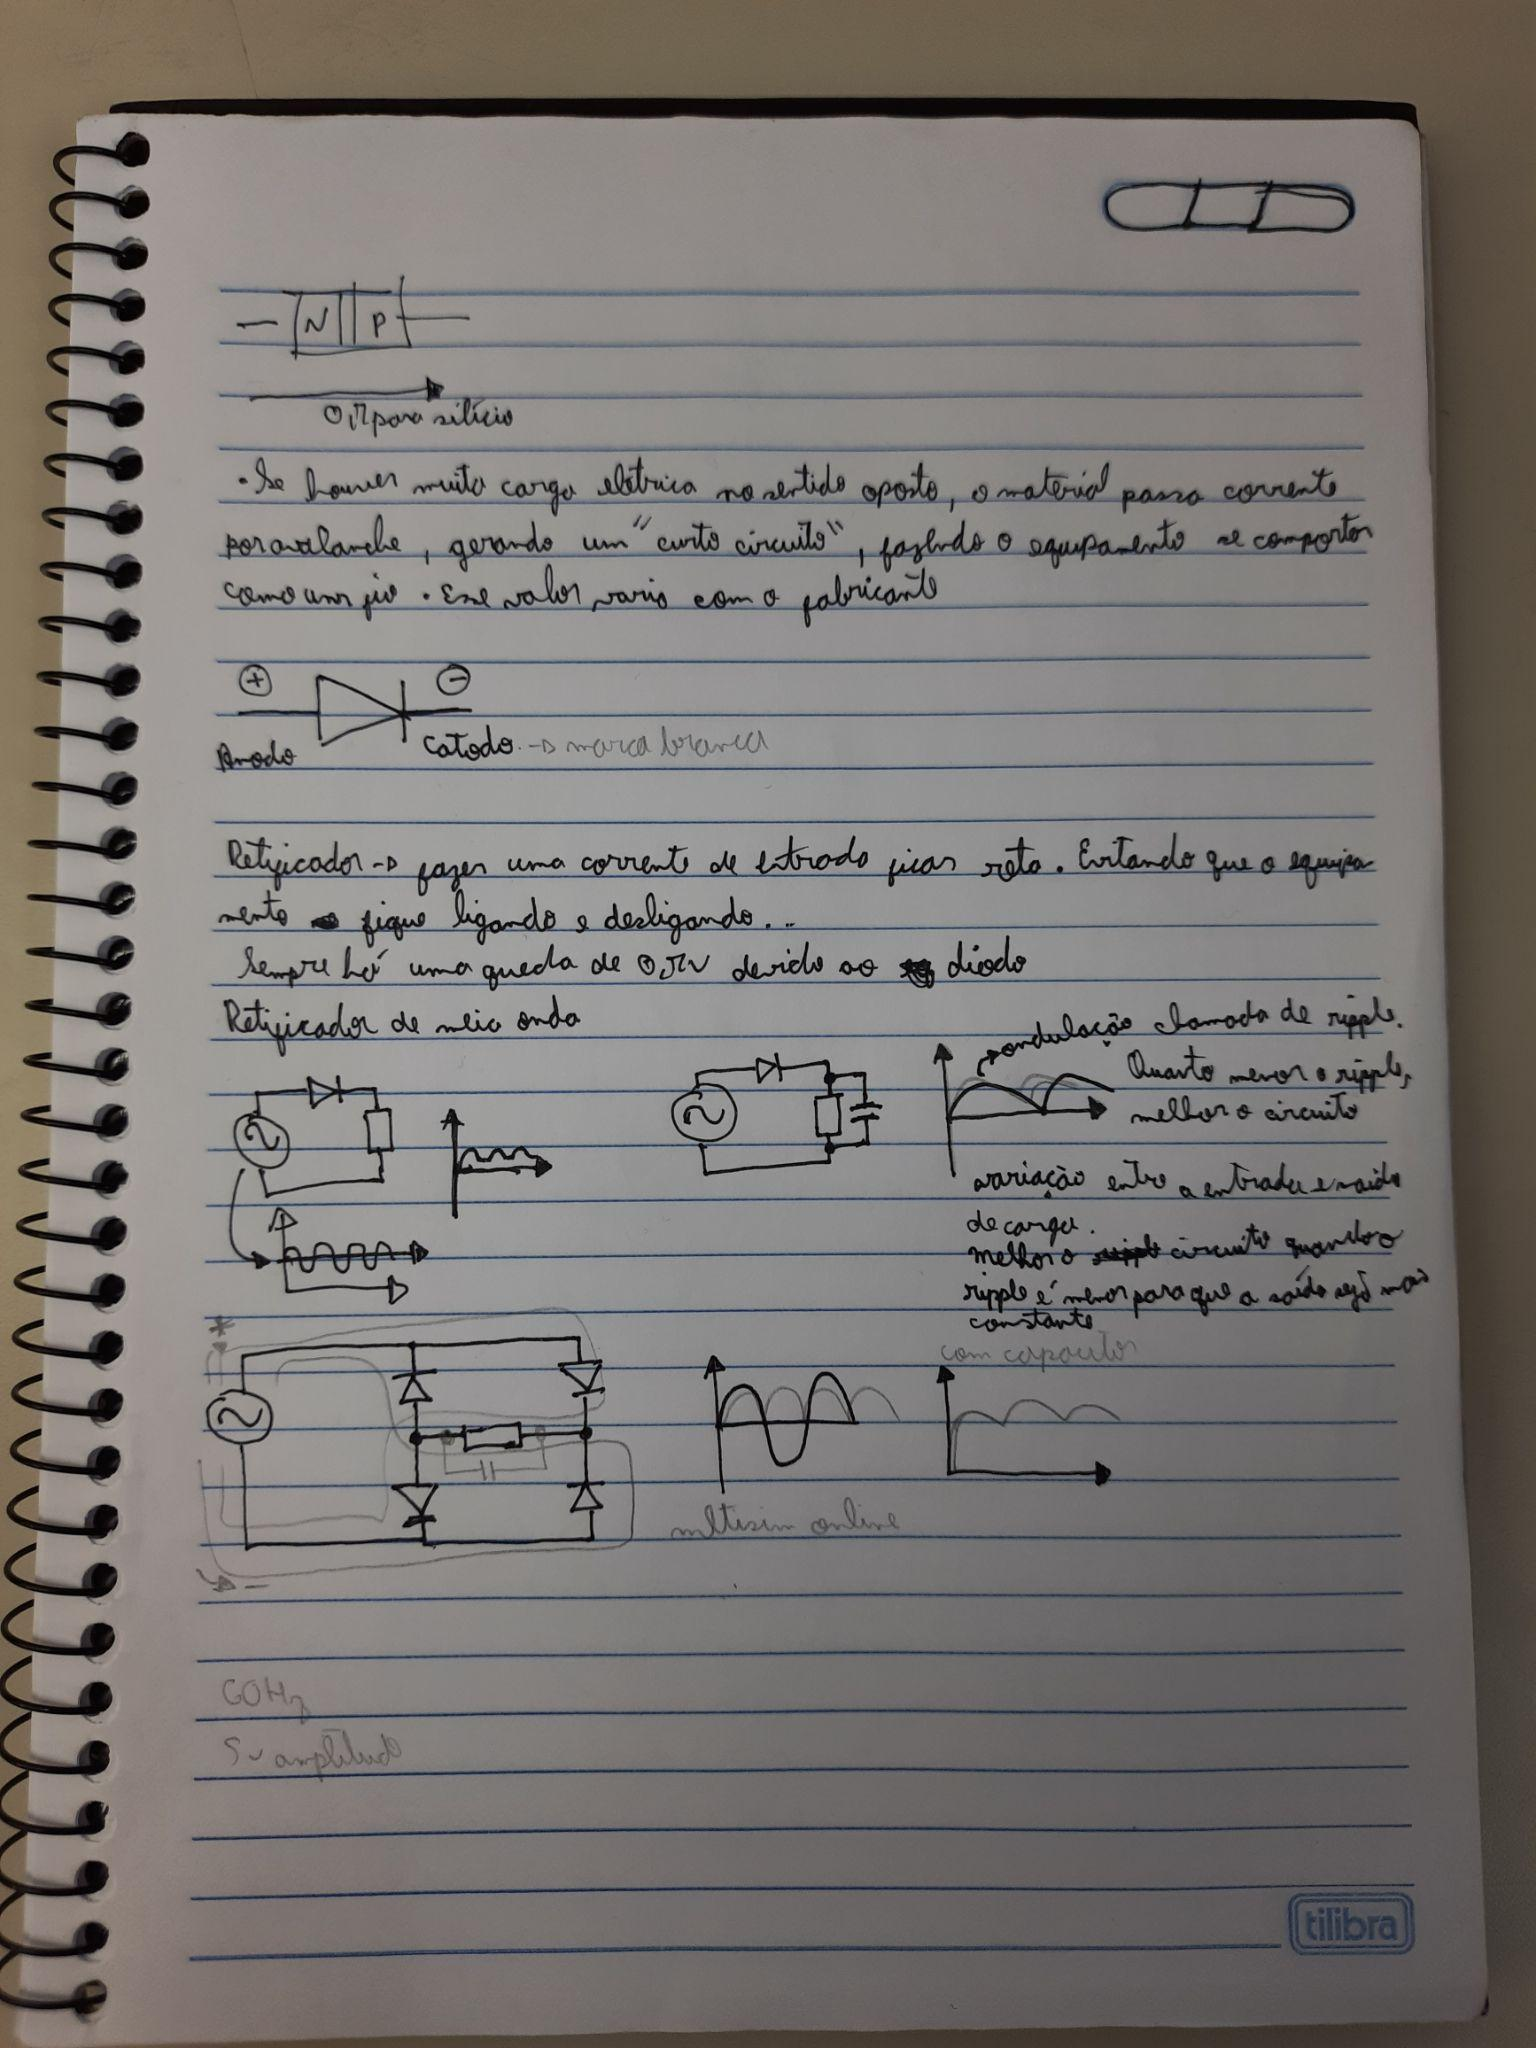 N P
0,7 para silício
• Se houver muita carga elétrica no sentido oposto, o material passa corrente
por avalanche, gerando um "curto circuito", fazendo o equipamento se comportar
como um fio. Esse valor varia com o fabricante
+ -
Anodo Catodo → marca branca
Retificador → fazer uma corrente de entrada ficar reta. Evitando que o equipa-
mento fique ligando e desligando...
Sempre há uma queda de 0,7V devido ao diodo
Retificador de meia onda
→ ondulação chamada de ripple.
Quanto menor o ripple,
melhor o circuito
variação entre a entrada e saída
de carga.
Melhor o circuito quando o
ripple é menor para que a saída seja mais
constante
com capacitor
multisim online
60Hz
5v amplitude
tilibra